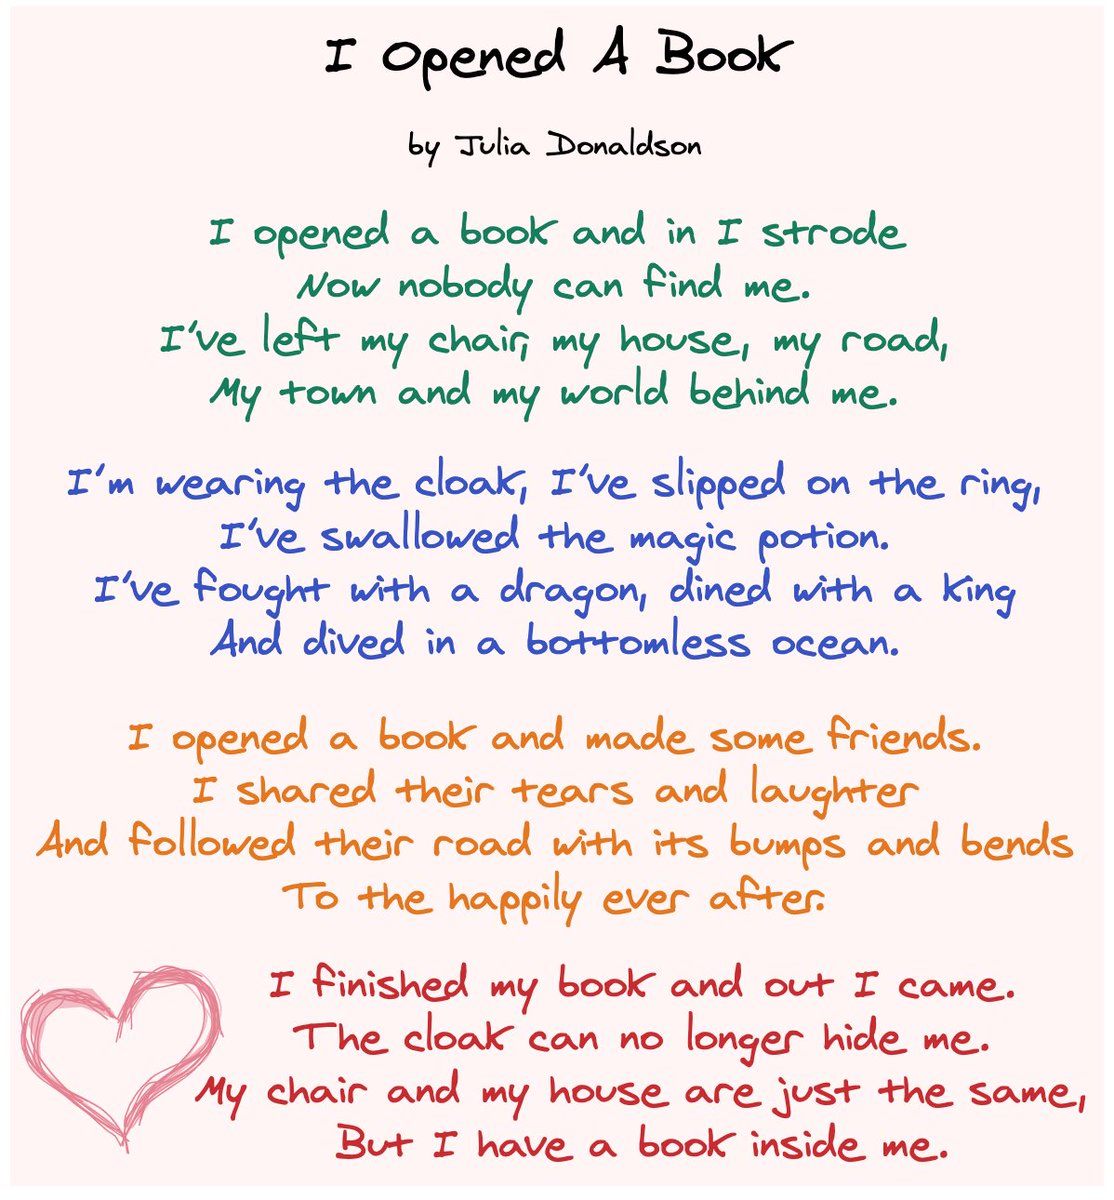 I Opened A Book
by Julia Donaldson
I opened a book and in I strode
Now nobody can find me.
I've left my chair, my house, my road,
My town and my world behind me.
I'm wearing the cloak, I've slipped on the ring,
I've swallowed the magic potion.
I've fought with a dragon, dined with a king
And dived in a bottomless ocean.
I opened a book and made some friends.
I shared their tears and laughter
And followed their road with its bumps and bends
To the happily ever after.
I finished my book and out I came.
The cloak can no longer hide me.
My chair and my house are just the same,
But I have a book inside me.